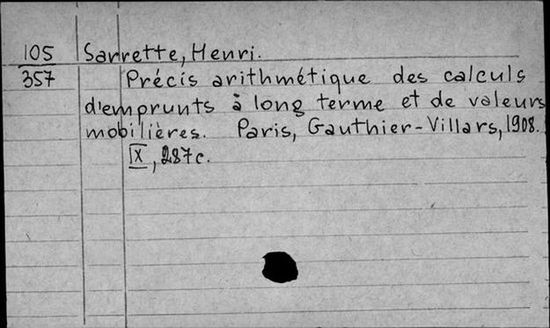 105 Sarrette, Henri.
357 Précis arithmétique des calculs
d'emprunts à long terme et de valeurs
mobilières. Paris, Gauthier-Villars, 1908.
IX, 287c.